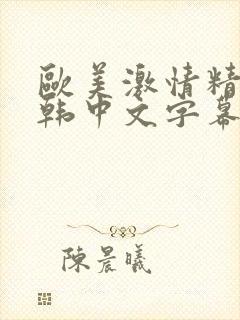 歐美激情精
韩中文字幕
陳晨曦